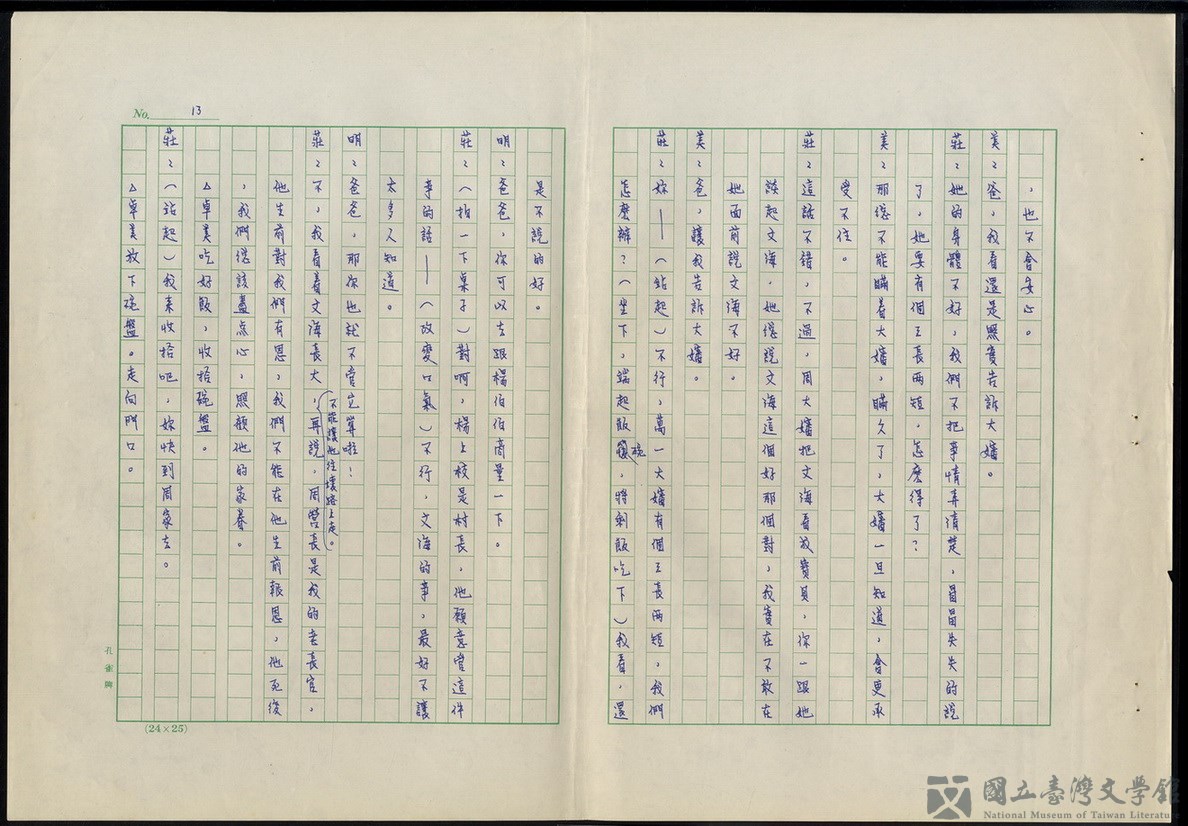 ，也不會安心。
美：爸，我看還是照實告訴大嬸。
莊：她的身體不好，我們不把事情弄清楚，冒冒失失的說
了，她要有個三長兩短，怎麽得了？
美：那總不能瞞着大嬸，瞞久了，大嬸一旦知道，會更承
受不住。
莊：這話不錯，不過，周大嬸把文海看成寶貝，你一跟她
談起文海，她總說文海這個好那個對，我實在不敢在
她面前說文海不好。
美：爸，讓我告訴大嬸。
莊：妳——（站起）不行，萬一大嬸有個三長兩短，我們
怎麽辦？（坐下，端起飯碗，將剩飯吃下）我看，還
是不說的好。
明：爸爸，你可以去跟楊伯伯商量一下。
莊：（拍一下桌子）對啊，楊上校是村長，他願意管這件
事的話——（改變口氣）不行，文海的事，最好不讓
太多人知道。
明：爸爸，那你也就不管它算啦！
莊：不，我看着文海長大，（不能讓他往壞路上走。）再說，周營長是我的老長官，
他生前對我們有恩，我們不能在他生前報恩，他死後
，我們總該盡点心，照顧他的家眷。
△卓美吃好飯，收拾碗盤。
莊：（站起）我來收拾吧，妳快到周家去。
△卓美放下碗盤。走向門口。
No. 13
(24×25)
國立臺灣文學館
National Museum of Taiwan Literature